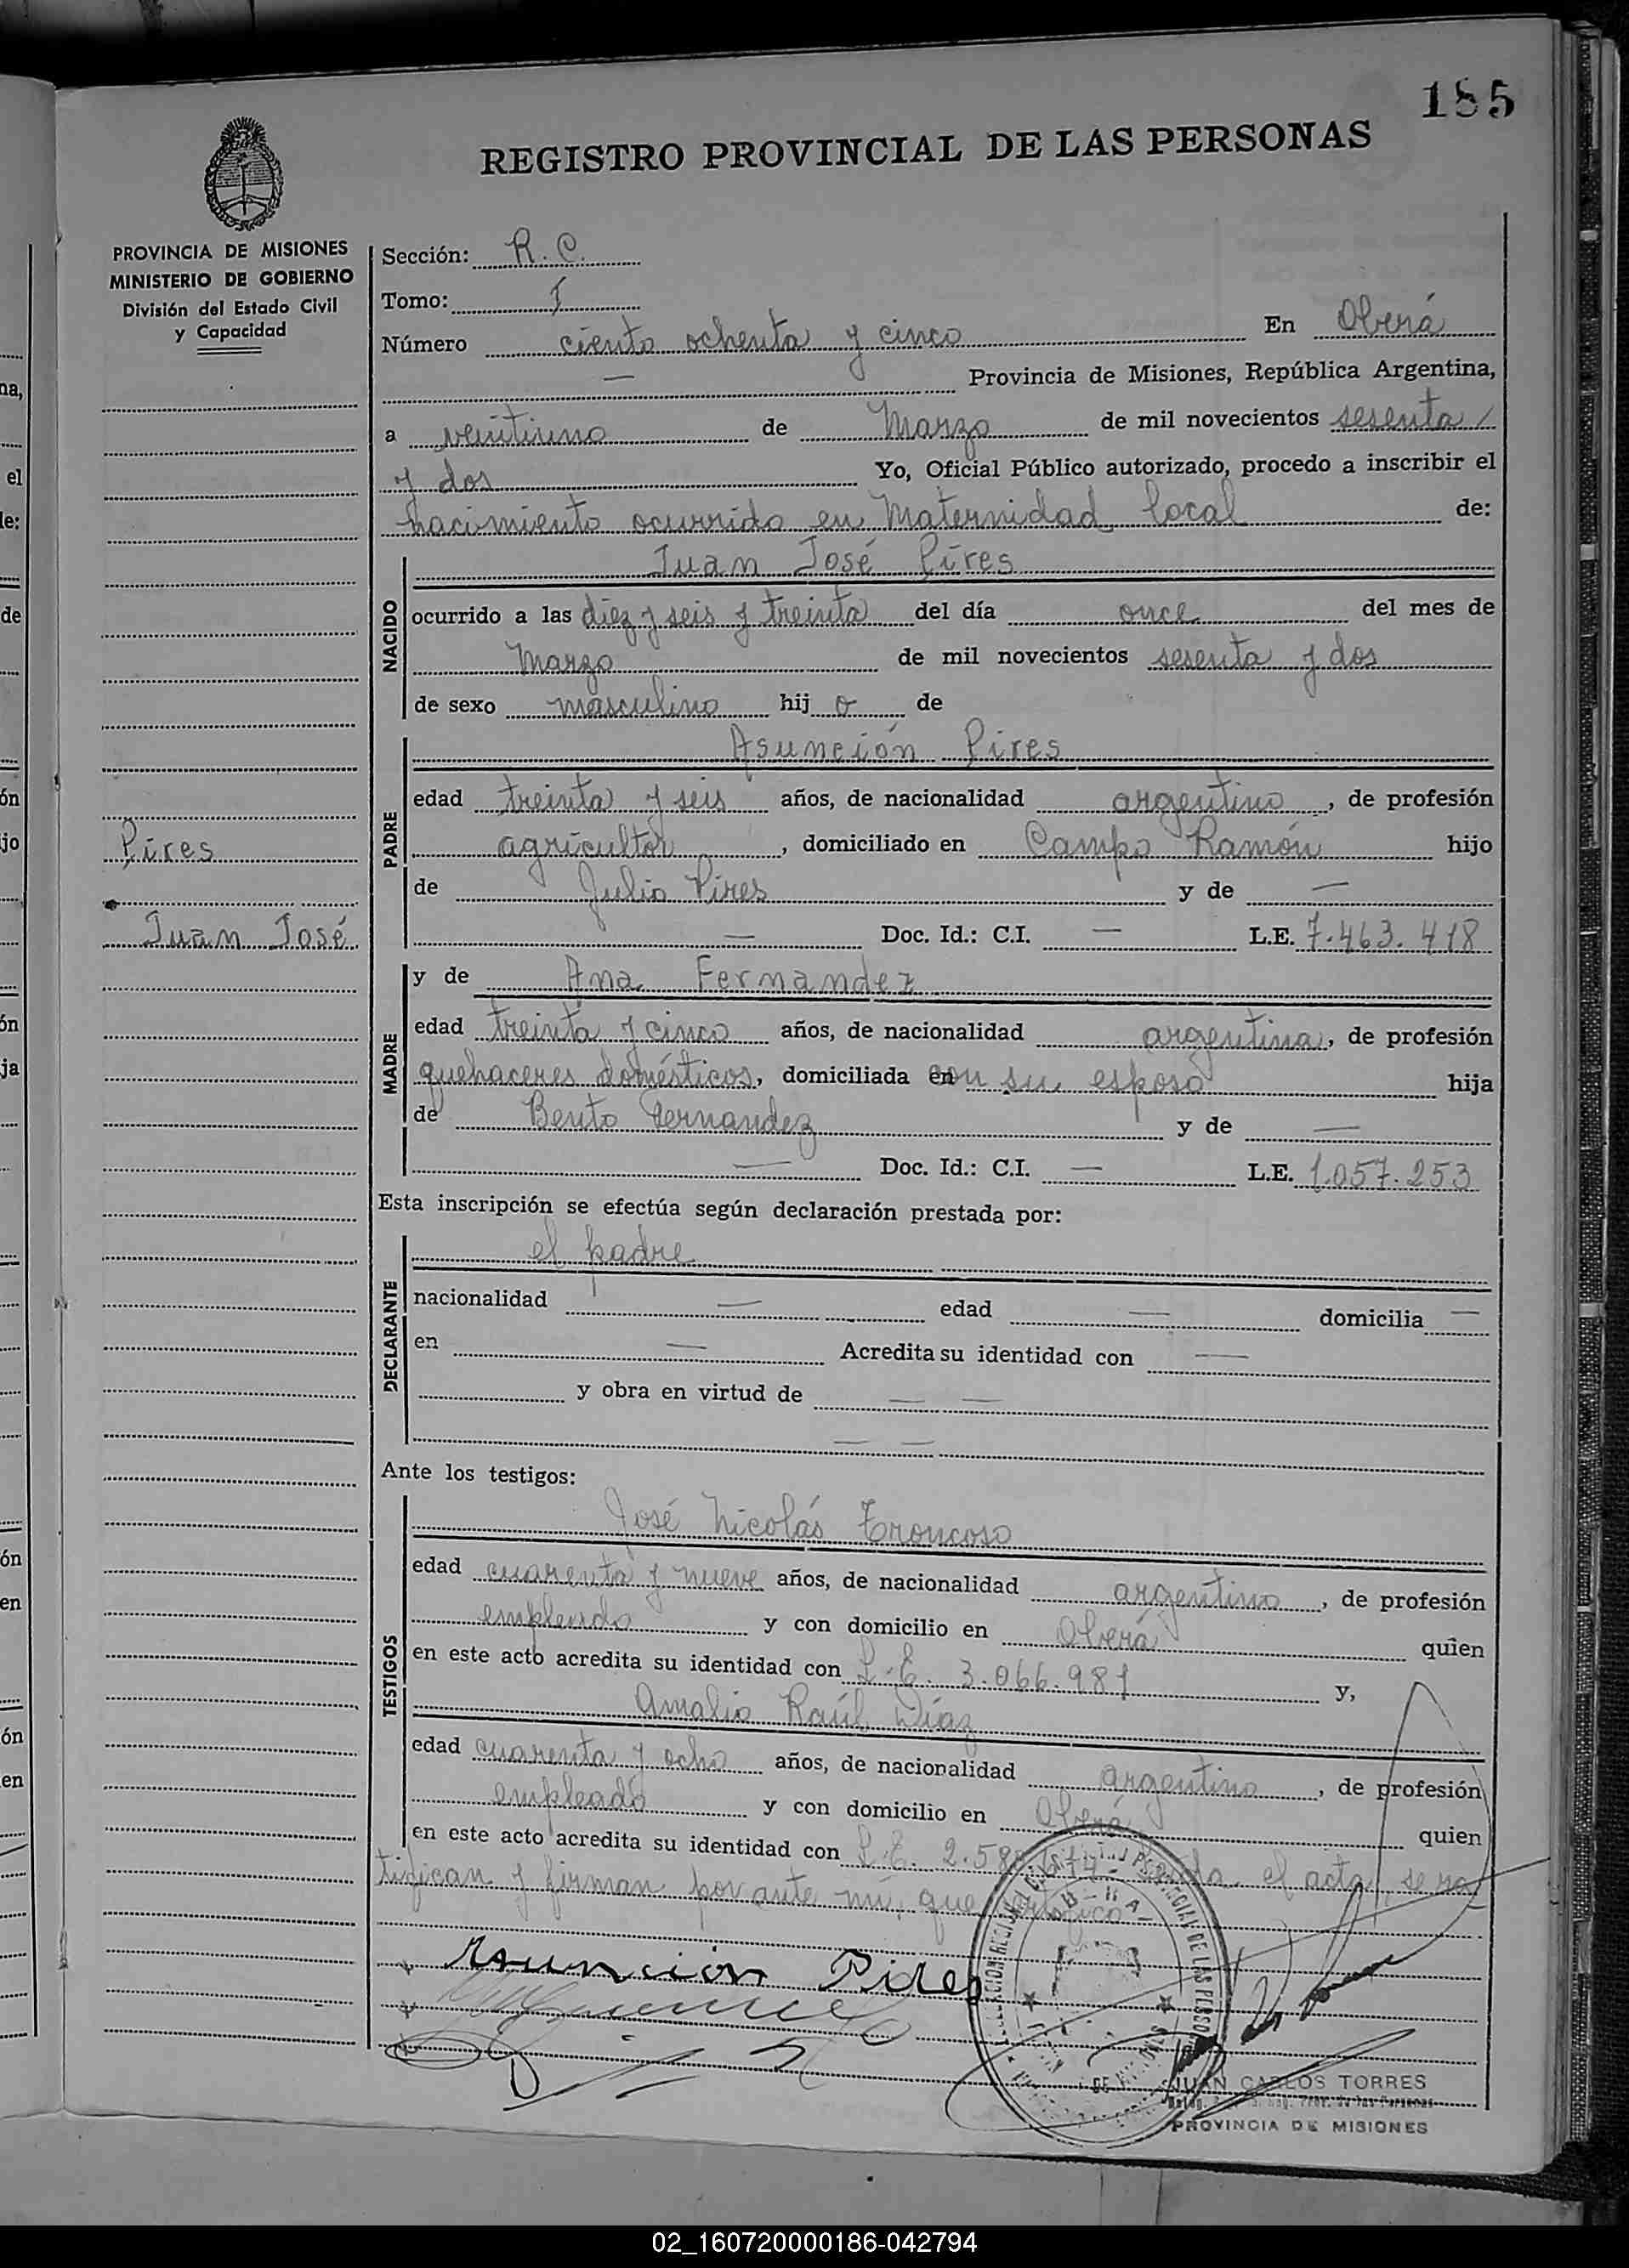 185
REGISTRO PROVINCIAL DE LAS PERSONAS
PROVINCIA DE MISIONES
MINISTERIO DE GOBIERNO
División del Estado Civil
y Capacidad
Pires
Juan José
Sección: R. C.
Tomo: I
Número ciento ochenta y cinco En Oberá
— Provincia de Misiones, República Argentina,
a veintiuno de Marzo de mil novecientos sesenta /
y dos Yo, Oficial Público autorizado, procedo a inscribir el
nacimiento ocurrido en Maternidad local de:
NACIDO
Juan José Pires
ocurrido a las diez y seis y treinta del día once del mes de
Marzo de mil novecientos sesenta y dos
de sexo masculino hij o de
PADRE
Asunción Pires
edad treinta y seis años, de nacionalidad argentino, de profesión
agricultor, domiciliado en Campo Ramón hijo
de Julio Pires y de —
— Doc. Id.: C.I. — L.E. 7.463.418
MADRE
y de Ana Fernandez
edad treinta y cinco años, de nacionalidad argentina, de profesión
quehaceres domésticos, domiciliada en con su esposo hija
de Bento Fernandez y de —
— Doc. Id.: C.I. — L.E. 1.057.253
Esta inscripción se efectúa según declaración prestada por:
DECLARANTE
el padre
nacionalidad — edad — domicilia —
en — Acredita su identidad con —
y obra en virtud de — —
— —
Ante los testigos:
TESTIGOS
José Nicolás Troncoso
edad cuarenta y nueve años, de nacionalidad argentino, de profesión
empleado y con domicilio en Oberá quien
en este acto acredita su identidad con L.E. 3.066.981 y,
Amalio Raúl Díaz
edad cuarenta y ocho años, de nacionalidad argentino, de profesión
empleado y con domicilio en Oberá quien
en este acto acredita su identidad con L.E. 2.58 el acta, se ra
tifican y firman por ante mí, que certifico
Asunción Pires
JUAN CARLOS TORRES
PROVINCIA DE MISIONES
02_160720000186-042794